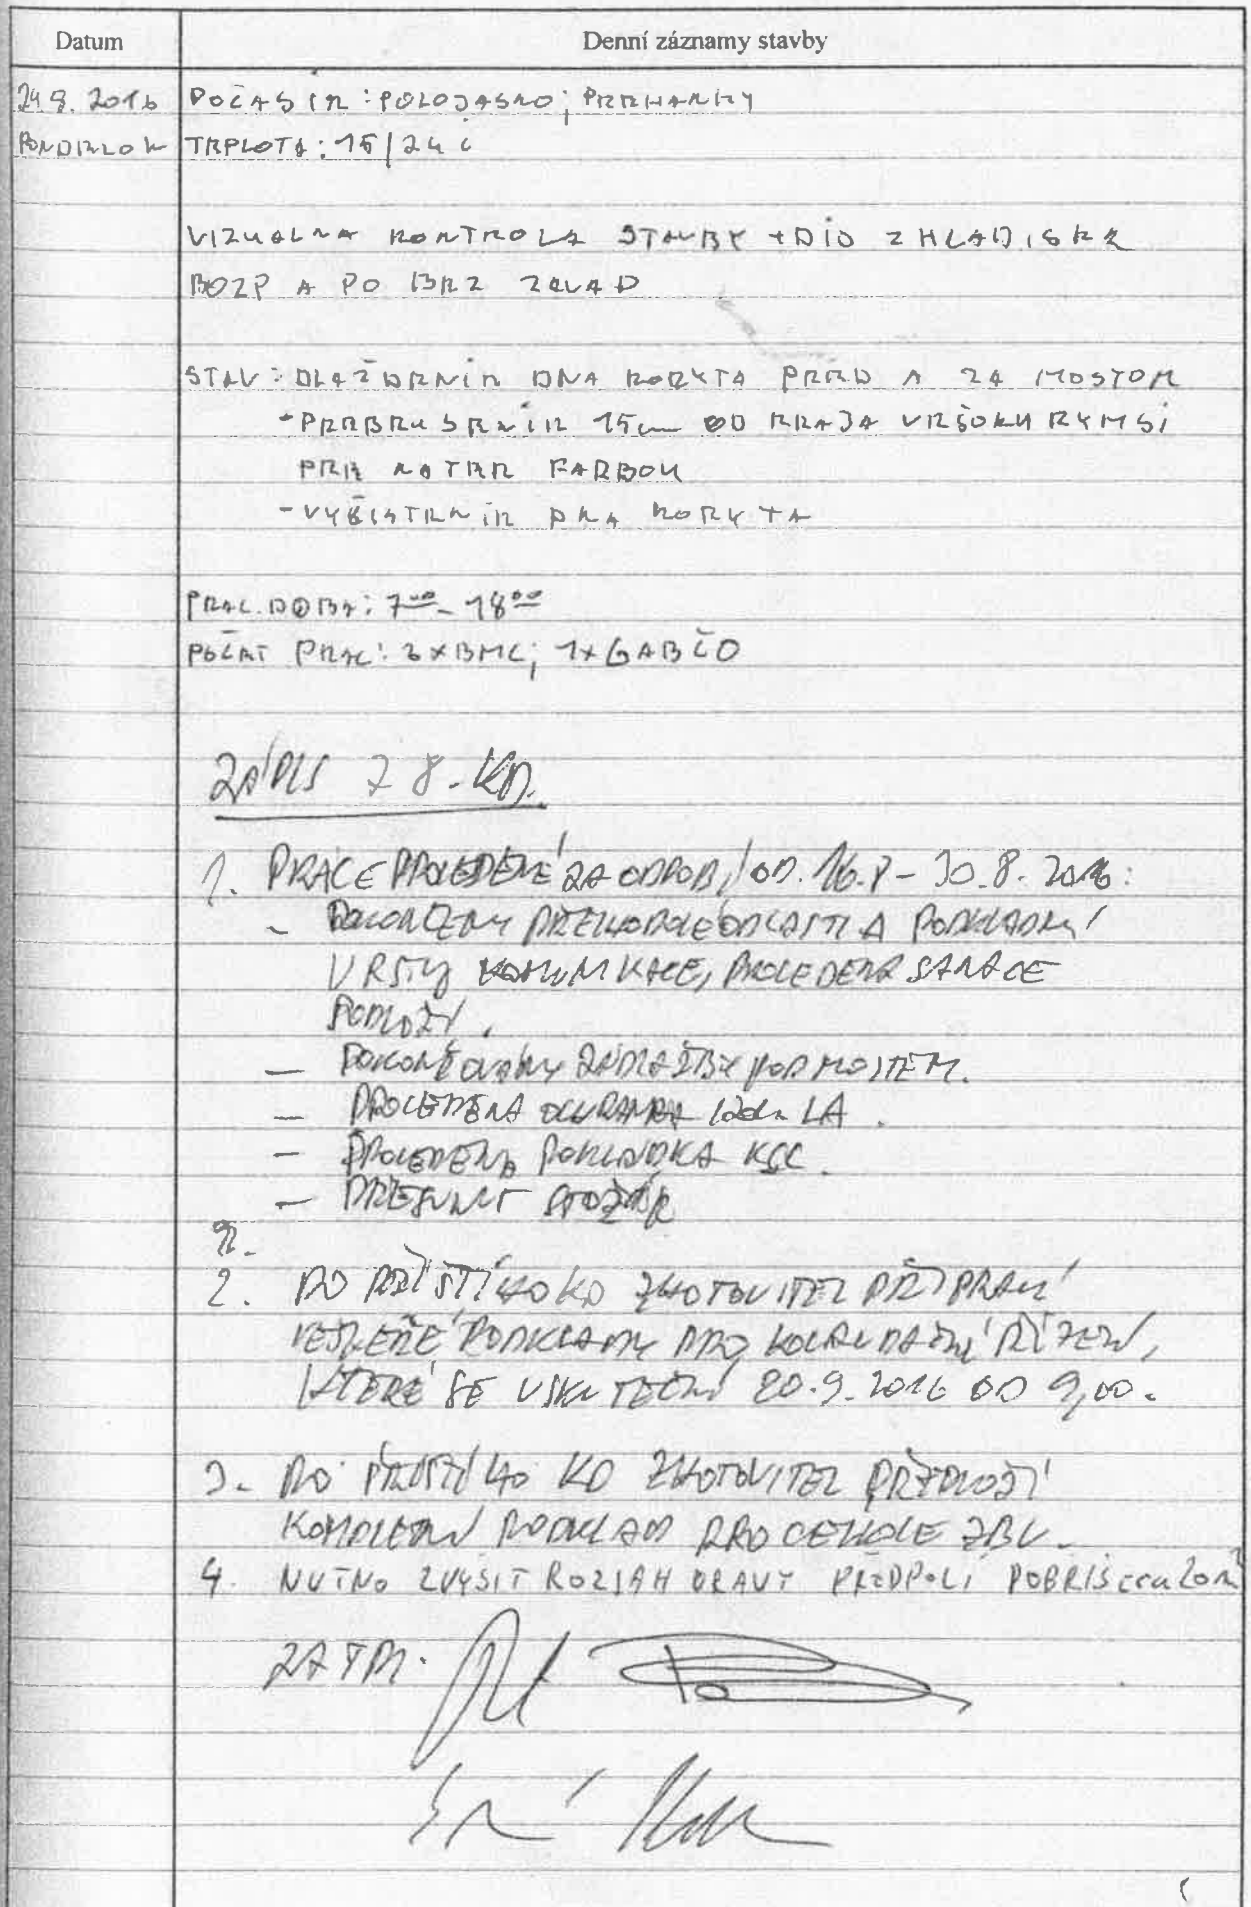 Datum
Denní záznamy stavby
2016 POČASIE: POLOJASNO; PREHANKY
PONDELOK TEPLOTA: 15/24 C
VIZUALNA KONTROLA STAVBY + DIO Z HLADISKA
BOZP A PO BEZ ZAVAD
STAV: DLAŽDENIE DNA KORYTA PRED A ZA MOSTOM
- PREBRUSENIE 15cm OD KRAJA VRŠOKU RYMSI
PRE NATER FARBOU
- VYČISTENIE DNA KORYTA
PRAC. DOBA: 7⁰⁰ - 18⁰⁰
POČET PRAC: 3xBMC; 1xGABČO
ZÁPIS Z 8. KD.
1. PRÁCE PROVEDENÉ ZA OBDOBÍ OD. 16.8 - 30.8. 2016:
- DOKONČENY PŘECHODOVÉ OBLASTI A PODKLADNÍ
VRSTVY KOMUNIKACE, PROVEDENA SANACE
PODLOŽÍ.
- DOKONČOVÁNY ZÁDLAŽBY POD MOSTEM.
- PROVEDENA OCHRANA LA.
- PROVEDENA POKLÁDKA KSC.
- PŘESUNUT STOŽÁR
2.
2. DO PŘÍŠTÍHO KD ZHOTOVITEL PŘIPRAVÍ
VEŠKERÉ PODKLADY PRO KOLAUDAČNÍ ŘÍZENÍ,
KTERÉ SE USKUTEČNÍ 20.9. 2016 OD 9,00.
3. DO PŘÍŠTÍHO KD ZHOTOVITEL PŘEDLOŽÍ
KOMPLETNÍ PODKLAD PRO CELKOVÉ ZBV.
4. NUTNO ZVÝŠIT ROZSAH ÚPRAVY PŘEDPOLÍ POBŘÍŠ cca 20m²
ZA TDI.